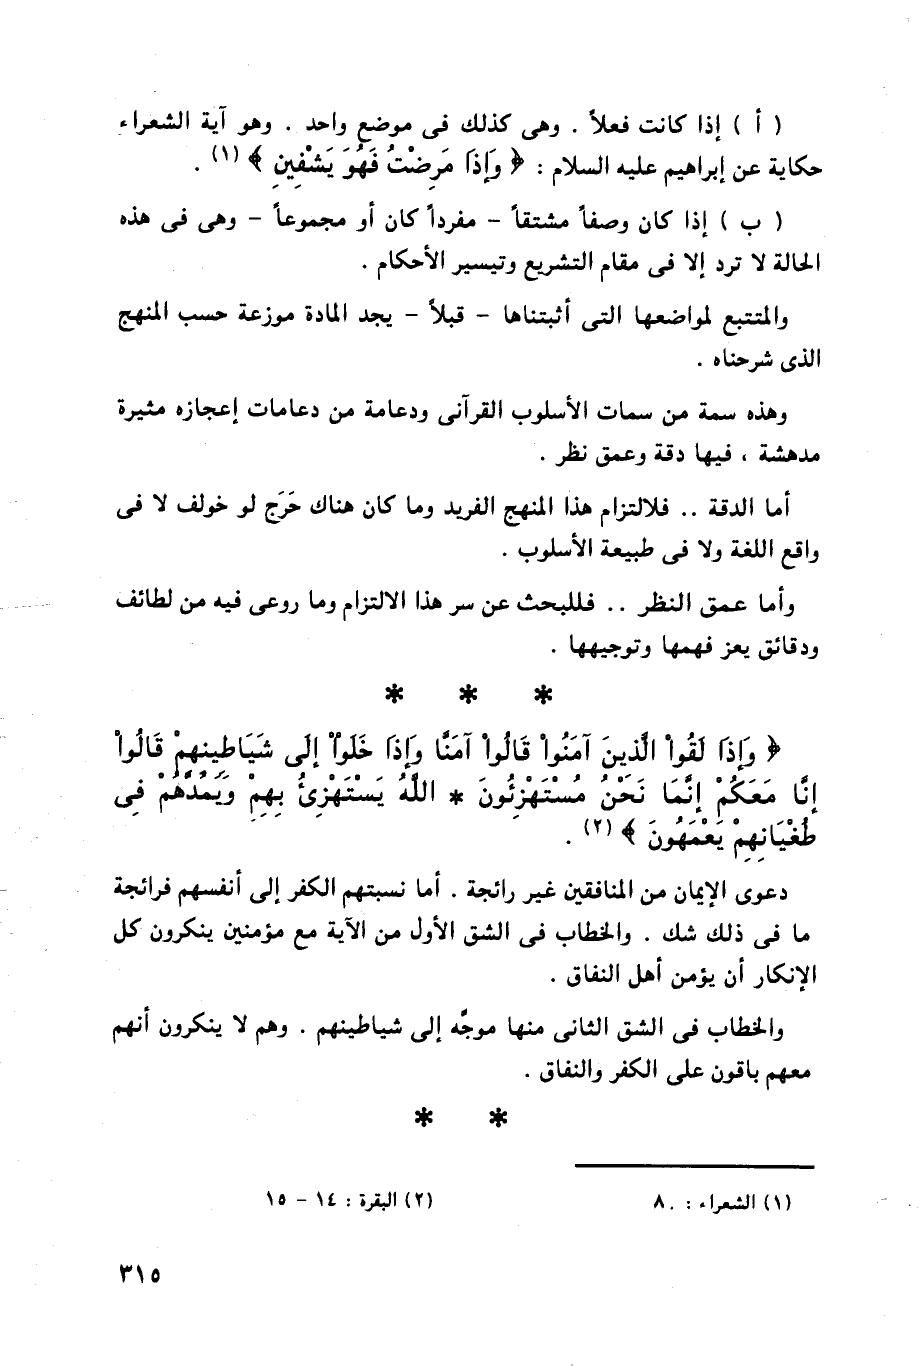 ( أ ) إذا كانت فعلاً . وهى كذلك فى موضع واحد . وهو آية الشعراء
حكاية عن إبراهيم عليه السلام : ﴿ وَإِذَا مَرِضْتُ فَهُوَ يَشْفِينِ ﴾ (١) .
( ب ) إذا كان وصفاً مشتقاً – مفرداً كان أو مجموعاً – وهى فى هذه
الحالة لا ترد إلا فى مقام التشريع وتيسير الأحكام .
والمتتبع لمواضعها التى أثبتناها – قبلاً – يجد المادة موزعة حسب المنهج
الذى شرحناه .
وهذه سمة من سمات الأسلوب القرآنى ودعامة من دعامات إعجازه مثيرة
مدهشة ، فيها دقة وعمق نظر .
أما الدقة .. فلالتزام هذا المنهج الفريد وما كان هناك حَرَج لو خولف لا فى
واقع اللغة ولا فى طبيعة الأسلوب .
وأما عمق النظر .. فللبحث عن سر هذا الالتزام وما روعى فيه من لطائف
ودقائق يعز فهمها وتوجيهها .
* * *
﴿ وَإِذَا لَقُواْ الَّذِينَ آمَنُواْ قَالُواْ آمَنَّا وَإِذَا خَلَواْ إِلَى شَيَاطِينِهِمْ قَالُواْ
إِنَّا مَعَكُمْ إِنَّمَا نَحْنُ مُسْتَهْزِئُونَ * اللَّهُ يَسْتَهْزِئُ بِهِمْ وَيَمُدُّهُمْ فِى
طُغْيَانِهِمْ يَعْمَهُونَ ﴾ (٢) .
دعوى الإيمان من المنافقين غير رائجة . أما نسبتهم الكفر إلى أنفسهم فرائجة
ما فى ذلك شك . والخطاب فى الشق الأول من الآية مع مؤمنين ينكرون كل
الإنكار أن يؤمن أهل النفاق .
والخطاب فى الشق الثانى منها موجَّه إلى شياطينهم . وهم لا ينكرون أنهم
معهم باقون على الكفر والنفاق .
* *
(١) الشعراء : ٨٠ (٢) البقرة : ١٤ – ١٥
٣١٥